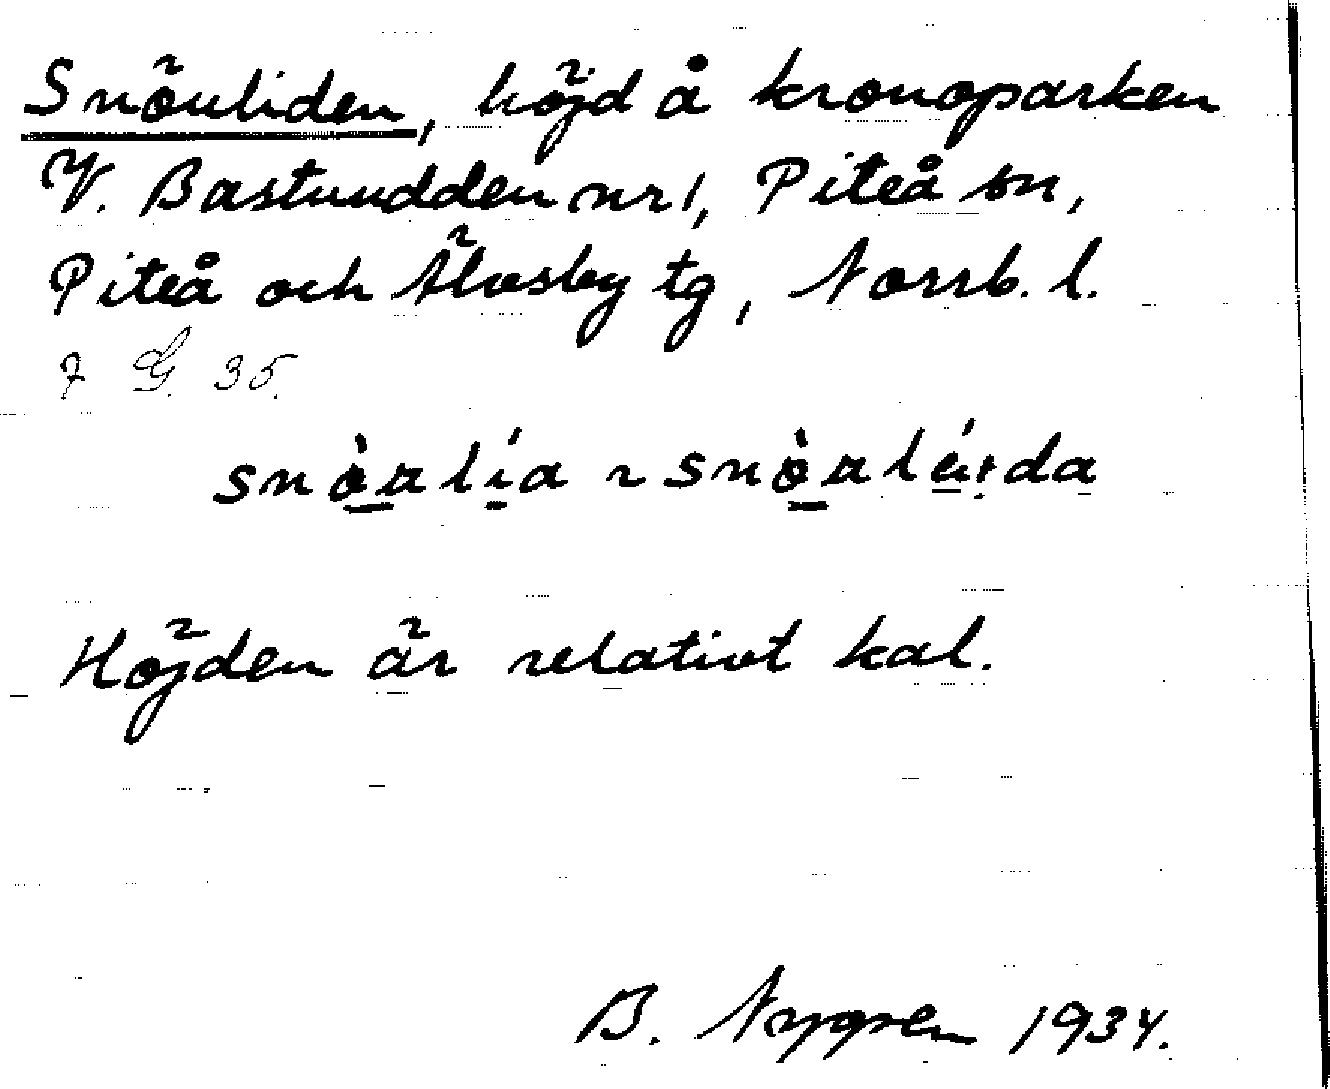 Snöuliden, höjd å kronoparken
V. Bastuudden nr 1, Piteå sn,
Piteå och Älvsby tg, Norrb. l.
7 G. 35.
Höjden är relativt kal.
B. Nygren 1934.